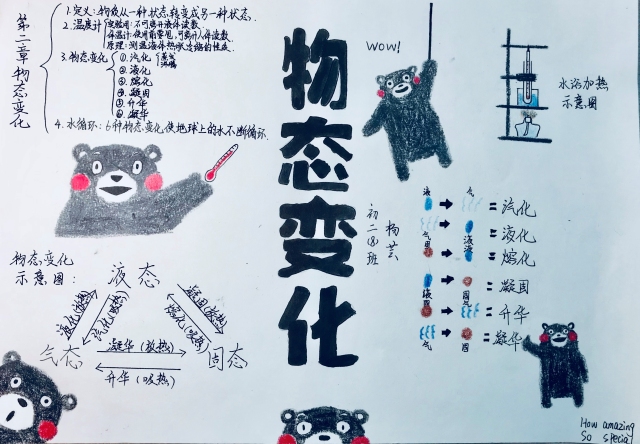 第二章物态变化
1. 定义:物质从一种状态转变成另一种状态.
2. 温度计
实验用:不可离开液体读数
体温计:使用前要甩,可离开人体读数
原理:测温液体热胀冷缩的性质
3. 物态变化
① 汽化
蒸发
沸腾
② 液化
③ 熔化
④ 凝固
⑤ 升华
⑥ 凝华
4. 水循环:6种物态变化使地球上的水不断循环.
物态变化
WOW!
水浴加热
示意图
初二(8)班
杨芸
液 气 = 汽化
气 液 = 液化
固 液 = 熔化
液 固 = 凝固
固 气 = 升华
气 固 = 凝华
物态变化
示意图:
液态
气态
固态
液化(放热)
汽化(吸热)
凝固(放热)
熔化(吸热)
凝华(放热)
升华(吸热)
How amazing
So special